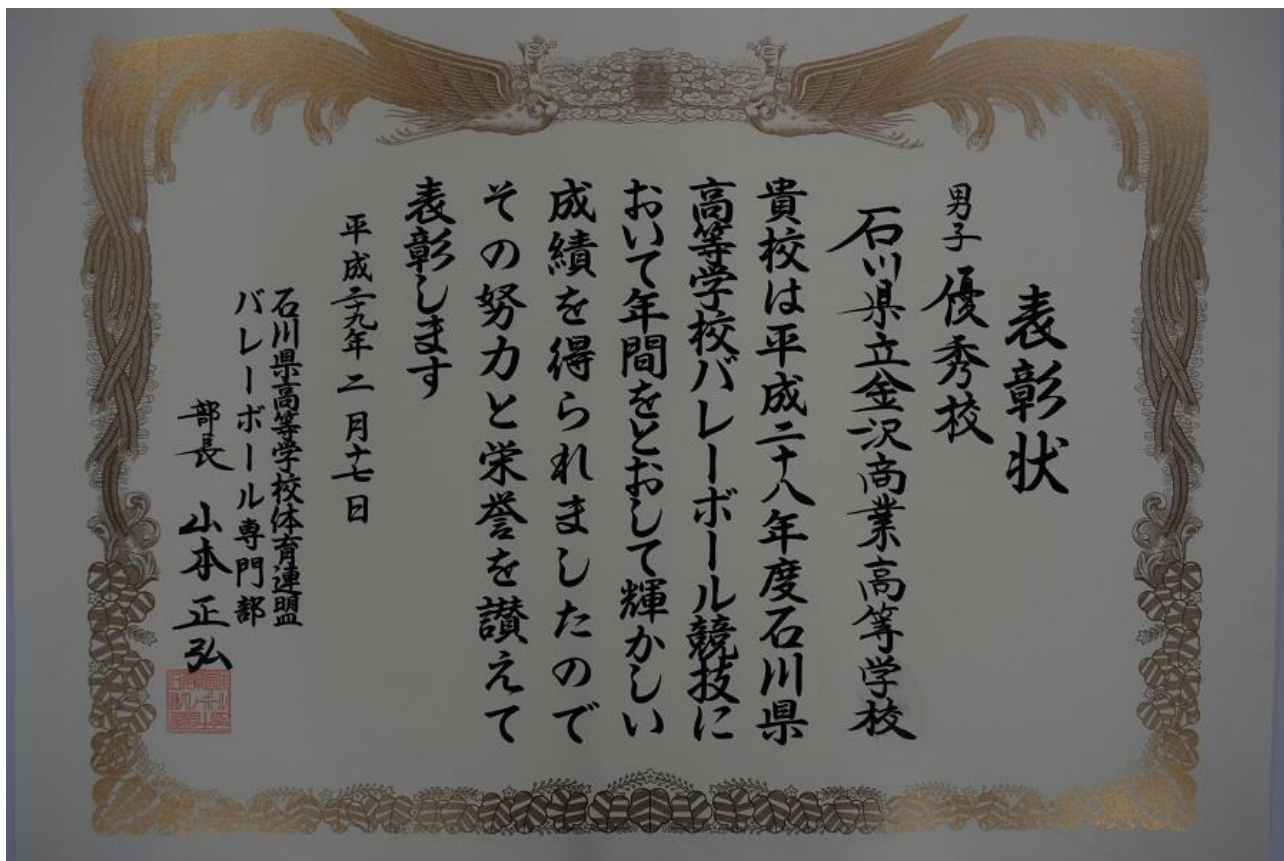 表彰状
男子 優秀校
石川県立金沢商業高等学校
貴校は平成二十八年度石川県
高等学校バレーボール競技に
おいて年間をとおして輝かしい
成績を得られましたので
その努力と栄誉を讃えて
表彰します
平成二九年 二月十七日
石川県高等学校体育連盟
バレーボール専門部
部長 山本正弘